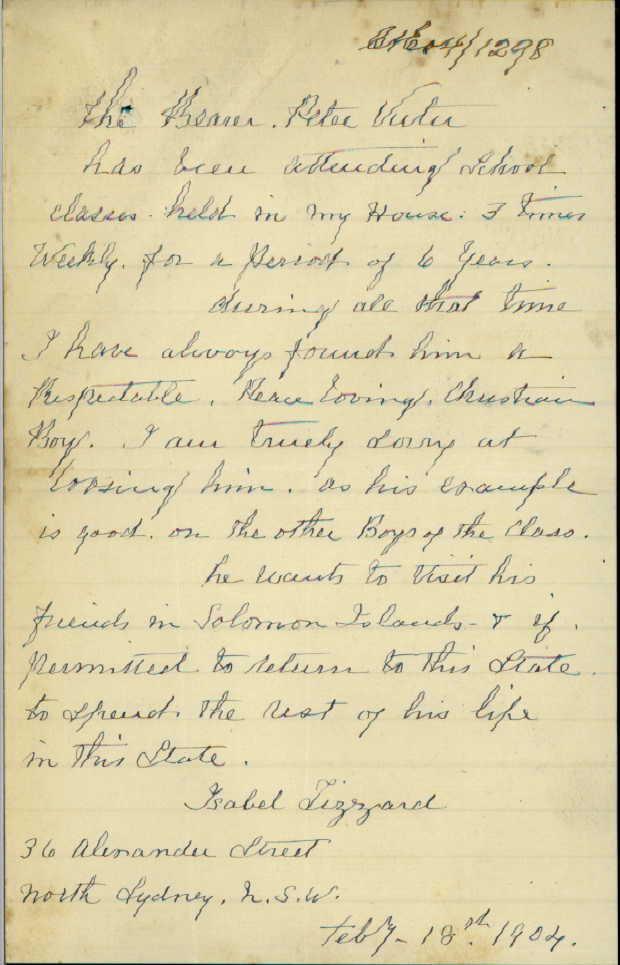 04/1298
The Bearer. Peter
has been attending School
classes. held in my House: 3 times
Weekly. for a Period of 6 Years.
during all that time
I have always found him a
Respectable. Peace Loving. Christian
Boy. I am truely sorry at
loosing him. as his example
is good. on the other Boys of the Class.
he wants to visit his
friends in Solomon Islands - & if.
permitted to return to this State.
to spend. the rest of his life
in this State.
Isabel Lizzard
36 Alexander Street
North Sydney. N.S.W.
Feby - 18st. 1904.